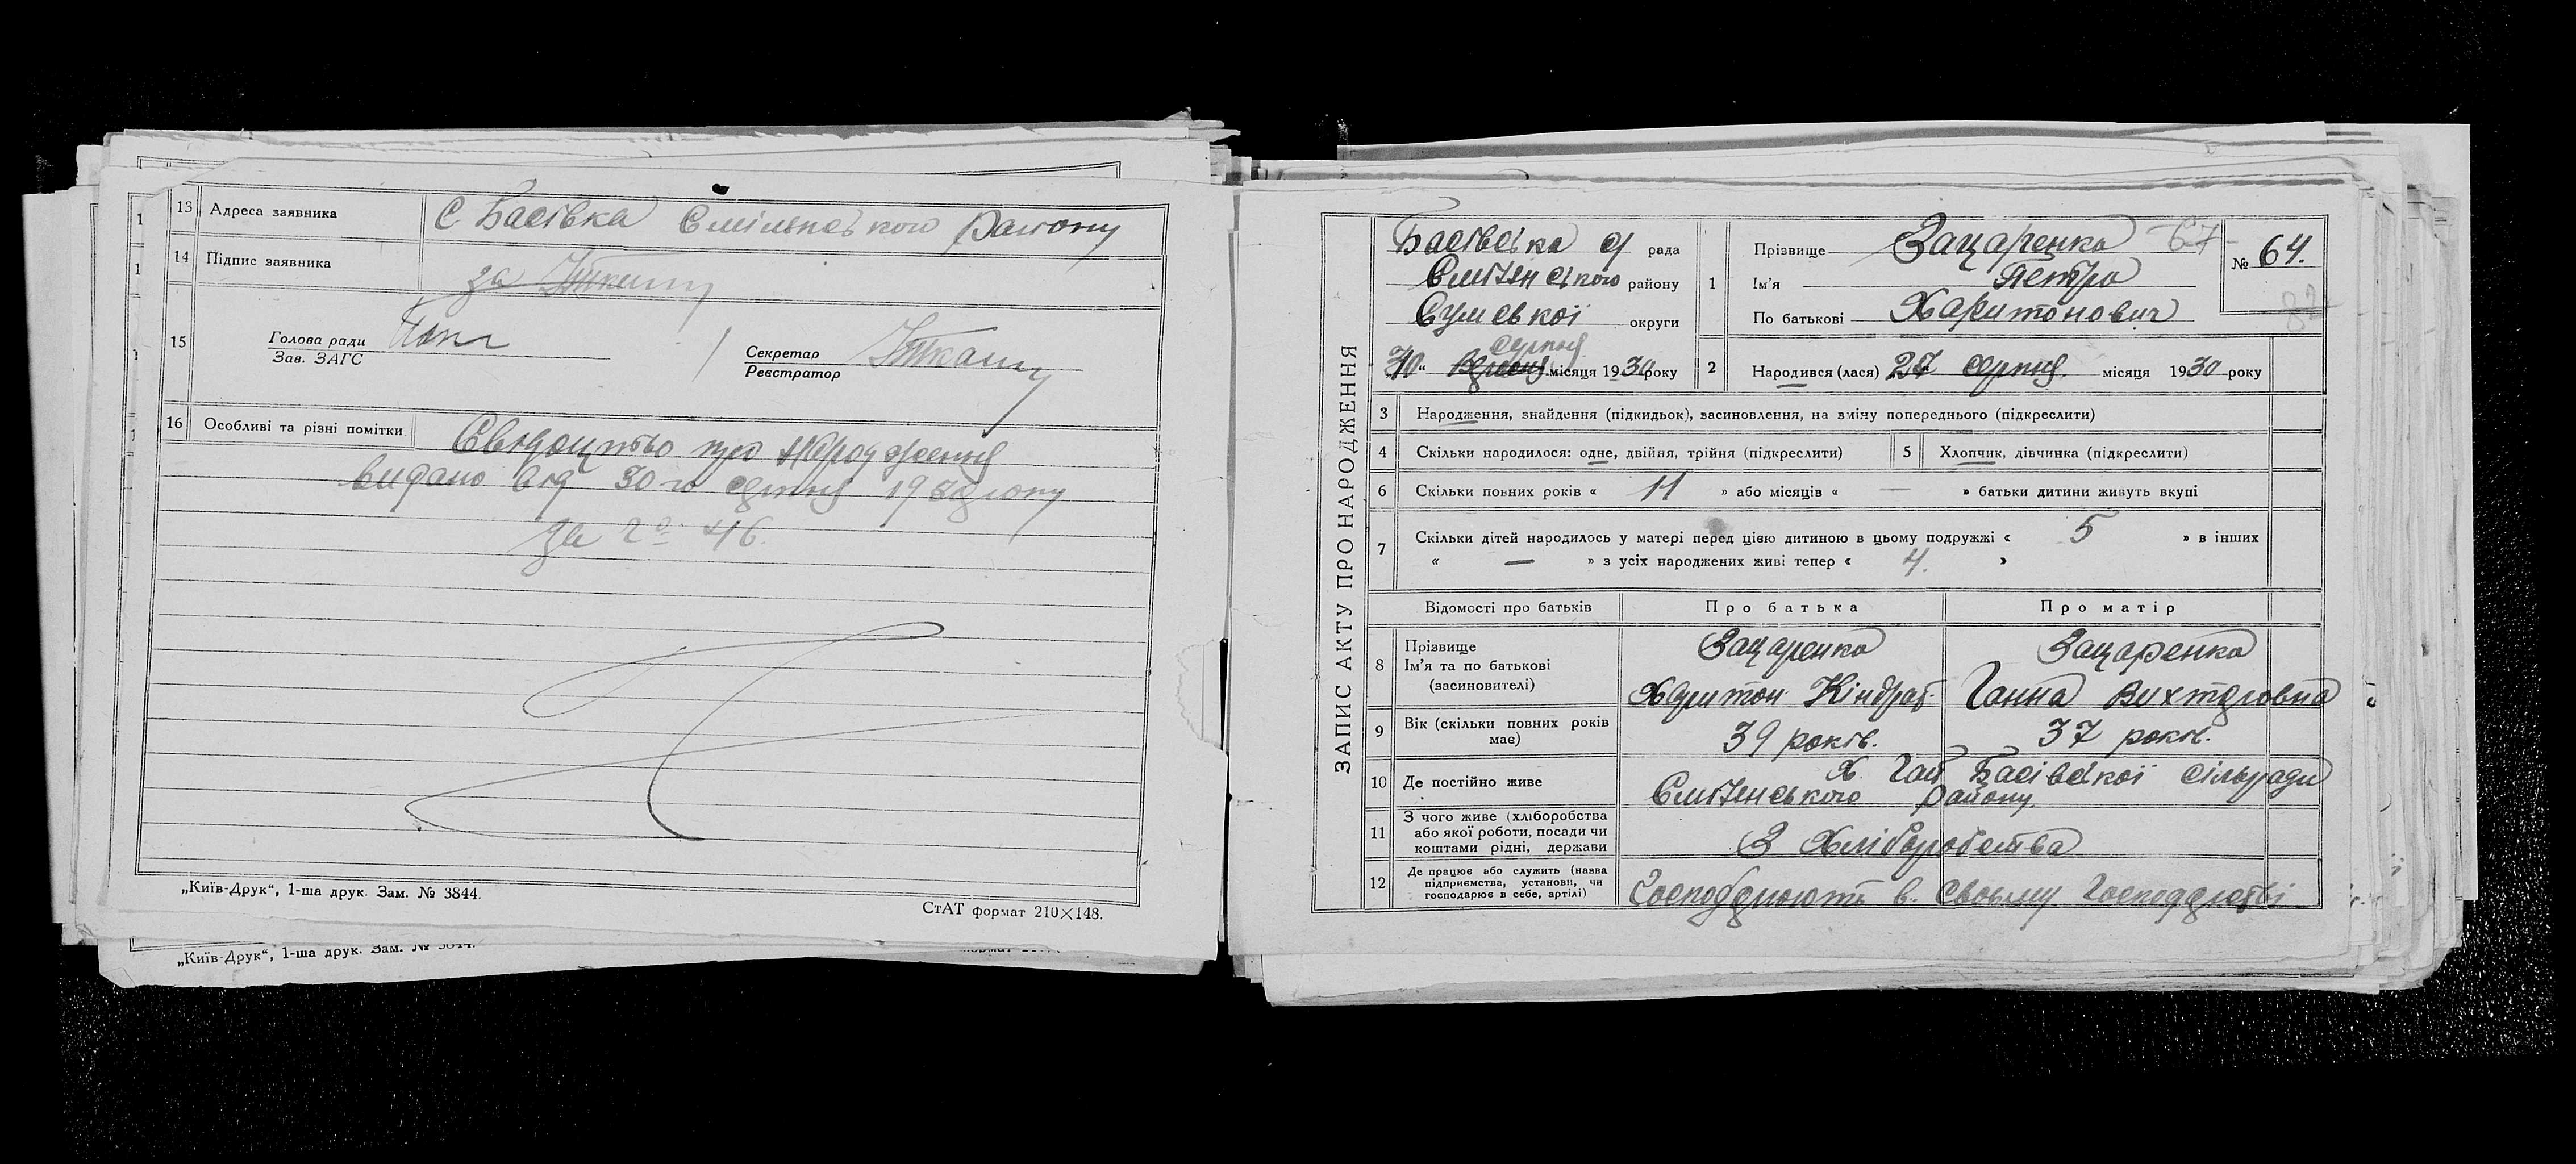 13 Адреса заявника С Басівка Смілянського району
14 Підпис заявника за
15 Голова ради
Зав. ЗАГС
Секретар
Реєстратор
16 Особливі та різні помітки Свідоцтво про народження
видано від 30-го серпня 1930 року
за № 46.
„Київ-Друк“, 1-ша друк. Зам. № 3844.
СтАТ формат 210×148.
„Київ-Друк“, 1-ша друк. Зам. № 3844.
ЗАПИС АКТУ ПРО НАРОДЖЕННЯ
Басівська с рада
району
Сумської округи
серпня
30 “ місяця 1930 року
1 Прізвище Зацаренко 67
Ім'я Петро
По батькові Харитонович
№ 64.
82
2 Народився (лася) 27 серпня місяця 1930 року
3 Народження, знайдення (підкидьок), засиновлення, на зміну попереднього (підкреслити)
4 Скільки народилося: одне, двійня, трійня (підкреслити) 5 Хлопчик, дівчинка (підкреслити)
6 Скільки повних років « 11 » або місяців « — » батьки дитини живуть вкупі
7 Скільки дітей народилось у матері перед цією дитиною в цьому подружжі « 5 » в інших
« — » з усіх народжених живі тепер « 4. »
Відомості про батьків Про батька Про матір
8 Прізвище
Ім'я та по батькові
(засиновителі)
Зацаренко Зацаренко
Харитон Кіндрат. Ганна
9 Вік (скільки повних років має) 39 років. 37 рокн.
10 Де постійно живе Х. Гай Басівської сільради
району
11 З чого живе (хліборобства
або якої роботи, посади чи
коштами рідні, держави
З хліборобства
12 Де працює або служить (назва
підприємства, установи, чи
господарює в себе, артілі)
Господарюють в своьму господарстві